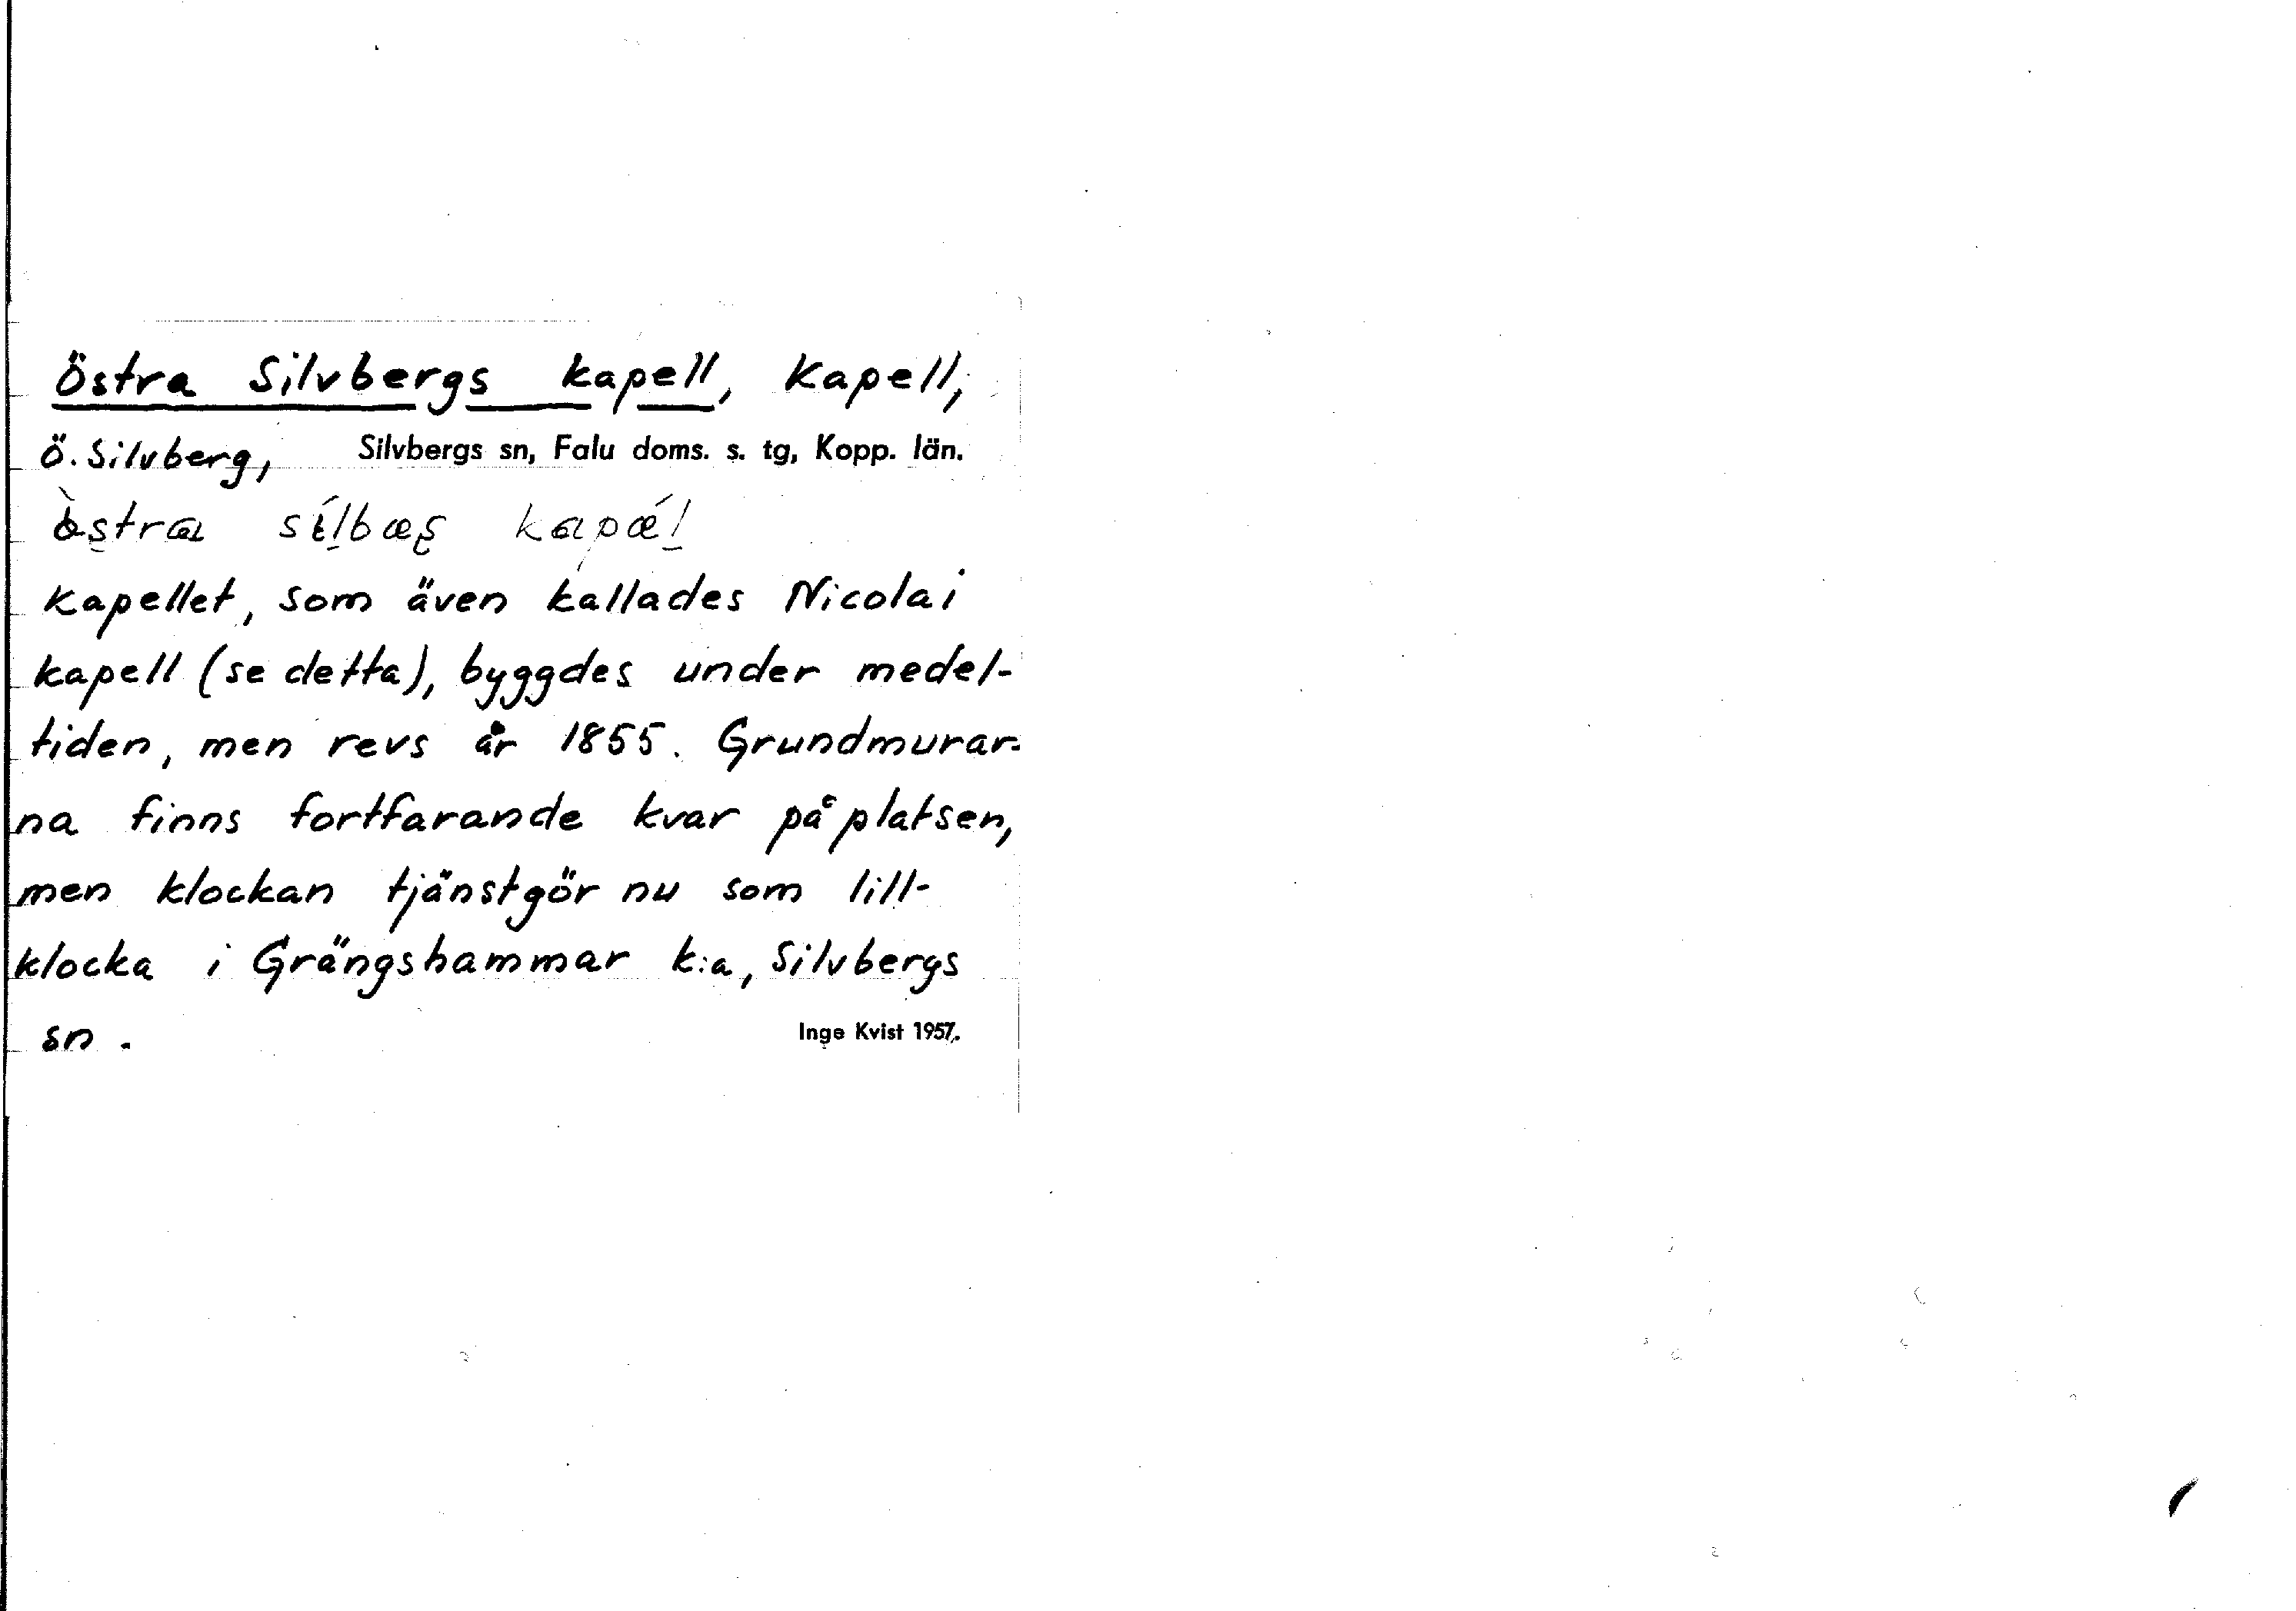 Östra Silvbergs kapell, Kapell,
Ö. Silvberg, Silvbergs sn, Falu doms. s. tg, Kopp. län.
kapellet, som även kallades Nicolai
kapell (se detta), byggdes under medel-
tiden, men revs år 1855. Grundmurar-
na finns fortfarande kvar på platsen,
men klockan tjänstgör nu som lill-
klocka i Grängshammar k:a, Silvbergs
sn.
Inge Kvist 1957.